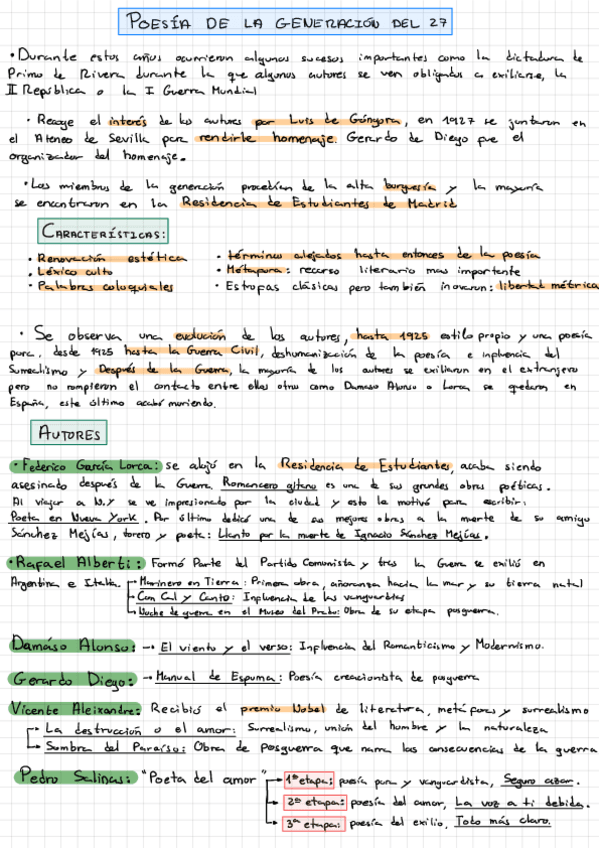 POESÍA DE LA GENERACIÓN DEL 27
• Durante estos años ocurrieron algunos sucesos importantes como la dictadura de
Primo de Rivera durante la que algunos autores se ven obligados a exiliarse, la
II República o la I Guerra Mundial
• Recoge el interés de los autores por Luis de Góngora, en 1927 se juntaron en
el Ateneo de Sevilla para rendirle homenaje. Gerardo de Diego fue el
organizador del homenaje.
• Los miembros de la generación procedían de la alta burguesía y la mayoría
se encontraron en la Residencia de Estudiantes de Madrid
CARACTERÍSTICAS:
• Renovación estética
• Léxico culto
• Palabras coloquiales
• términos alejados hasta entonces de la poesía
• Metáfora: recurso literario mas importante
• Estrofas clásicas pero también innovaron: libertad métrica
• Se observa una evolución de los autores, hasta 1925 estilo propio y una poesía
pura, desde 1925 hasta la Guerra Civil, deshumanización de la poesía e influencia del
Surrealismo y Después de la Guerra, la mayoría de los autores se exiliaron en el extranjero
pero no rompieron el contacto entre ellos otros como Damaso Alonso o Lorca se quedaron en
España, este último acabó muriendo.
AUTORES
• Federico García Lorca: se alojó en la Residencia de Estudiantes, acaba siendo
asesinado después de la Guerra. Romancero gitano es una de sus grandes obras poéticas.
Al viajar a N.Y se ve impresionado por la ciudad y esto le motivó para escribir:
Poeta en Nueva York. Por último dedicó una de sus mejores obras a la muerte de su amigo
Sánchez Mejías, torero y poeta: Llanto por la muerte de Ignacio Sánchez Mejías.
• Rafael Alberti: Formó Parte del Partido Comunista y tras la Guerra se exilió en
Argentina e Italia. Marinero en Tierra: Primera obra, añoranza hacia la mar y su tierra natal
Con Cal y Canto: Influencia de las vanguardias
Noche de guerra en el Museo del Prado: Obra de su etapa posguerra.
Damaso Alonso: → El viento y el verso: Influencia del Romanticismo y Modernismo.
Gerardo Diego: → Manual de Espuma: Poesía creacionista de posguerra
Vicente Aleixandre: Recibió el premio Nobel de literatura, metáforas y surrealismo
La destrucción o el amor: Surrealismo, unión del hombre y la naturaleza
Sombra del Paraíso: Obra de Posguerra que narra las consecuencias de la guerra
Pedro Salinas: "Poeta del amor" 1ª etapa: poesía pura y vanguardista, Seguro azar.
2ª etapa: poesía del amor, La voz a ti debida.
3ª etapa: poesía del exilio, Todo más claro.